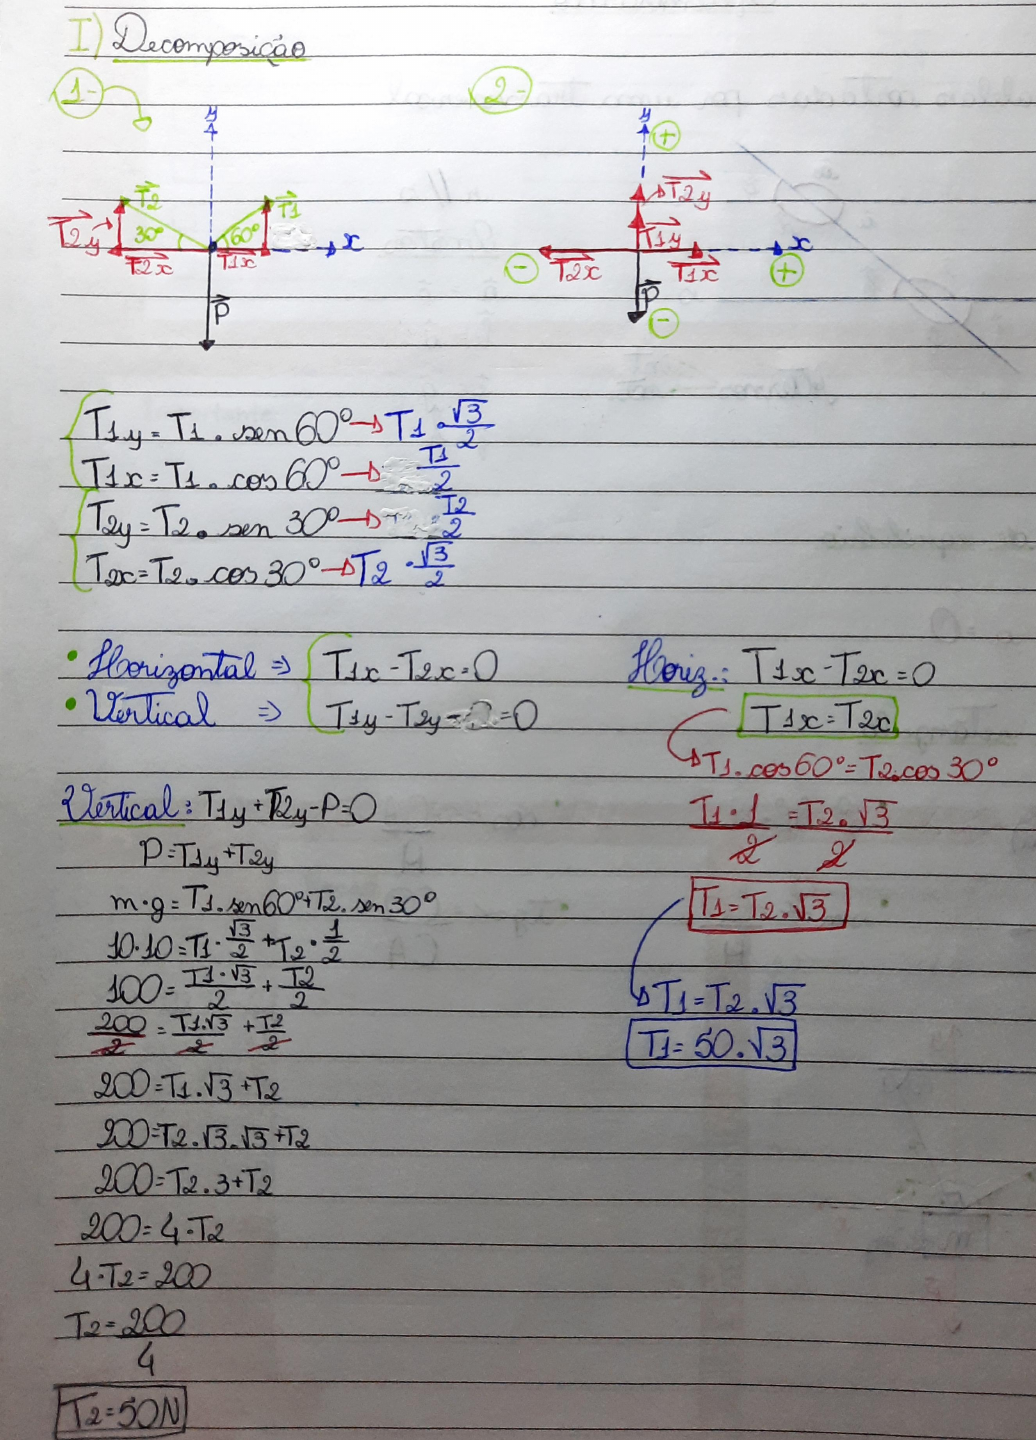 I) Decomposição
1-
2-
y
y
+
T2
T1
T2y
T2y
30°
60°
x
T1y
x
T2x
T1x
-
T2x
T1x
+
P
P
-
T1y = T1 . sen 60° → T1 · √3/2
T1x = T1 . cos 60° → T1/2
T2y = T2 . sen 30° → T2/2
T2x = T2 . cos 30° → T2 · √3/2
• Horizontal ⇒ T1x - T2x = 0
• Vertical ⇒ T1y - T2y - = 0
Horiz.: T1x - T2x = 0
T1x = T2x
T1. cos 60° = T2. cos 30°
T1 · 1/2 = T2 . √3/2
T1 = T2 . √3
T1 = T2 . √3
T1 = 50 . √3
Vertical: T1y + T2y - P = 0
P = T1y + T2y
m · g = T1. sen 60° + T2. sen 30°
10 · 10 = T1 · √3/2 + T2 · 1/2
100 = T1 · √3/2 + T2/2
200/2 = T1 . √3/2 + T2/2
200 = T1 . √3 + T2
200 = T2 . √3 . √3 + T2
200 = T2 . 3 + T2
200 = 4 · T2
4 · T2 = 200
T2 = 200/4
T2 = 50N